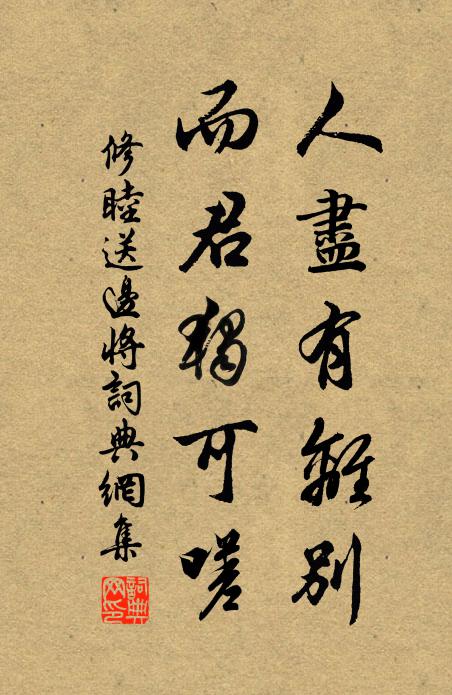 人盡有離別
而君獨可嗟
修睦送邊將詞典網集
詞典網印